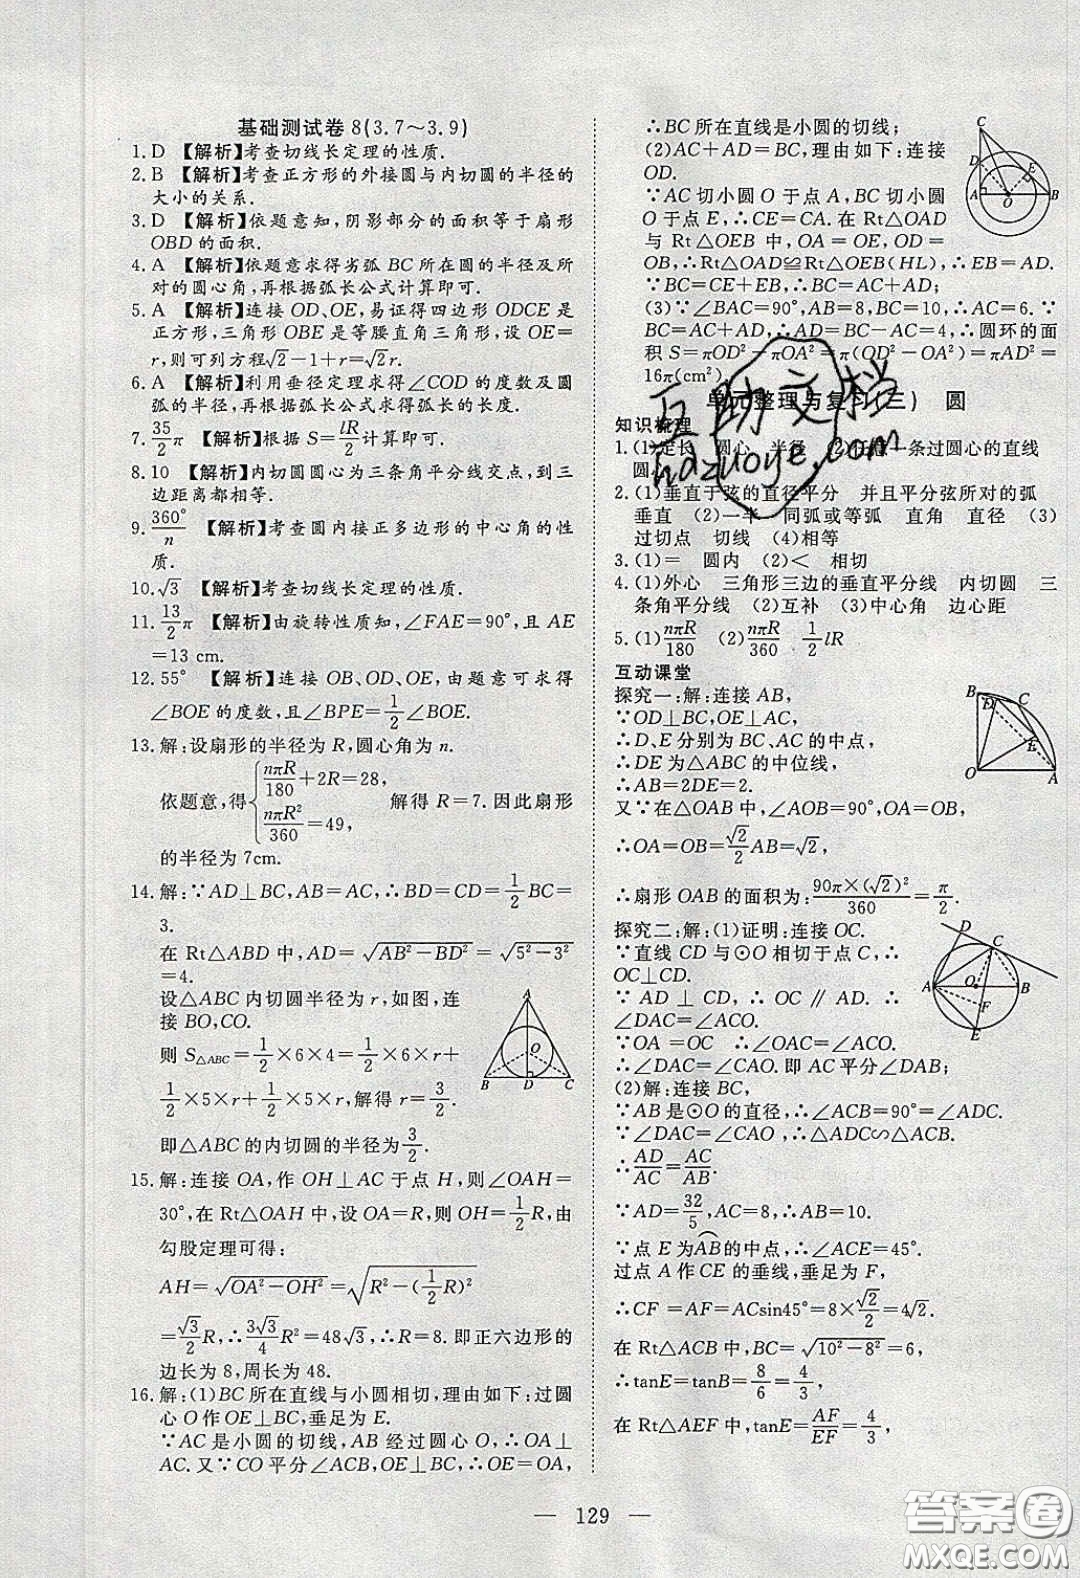 基础测试卷8(3.7～3.9)
1. D 【解析】考查切线长定理的性质.
2. B 【解析】考查正方形的外接圆与内切圆的半径的
大小的关系.
3. D 【解析】依题意知,阴影部分的面积等于扇形
OBD的面积.
4. A 【解析】依题意求得劣弧BC所在圆的半径及所
对的圆心角,再根据弧长公式计算即可.
5. A 【解析】连接OD、OE,易证得四边形ODCE是
正方形,三角形OBE是等腰直角三角形,设OE=
r,则可列方程√2-1+r=√2r.
6. A 【解析】利用垂径定理求得∠COD的度数及圆
的半径,再根据弧长公式求得长度.
7. 35/2 π 【解析】根据S=lR/2计算即可.
8. 10 【解析】内切圆圆心为三条角平分线交点,到三
边距离都相等.
9. 360°/n 【解析】考查圆内接正多边形的中心角的性
质.
10. √3 【解析】考查切线长定理的性质.
11. 13/2 π 【解析】由旋转性质知,∠FAE=90°,且AE
=13 cm.
12. 55° 【解析】连接OB、OD、OE,由题意可求得
∠BOE的度数,且∠BPE=1/2∠BOE.
13. 解:设扇形的半径为R,圆心角为n.
依题意,得{nπR/180+2R=28, nπR²/360=49, 解得R=7.因此扇形
的半径为7cm.
14. 解:∵AD⊥BC,AB=AC,∴BD=CD=1/2BC=
3.
在Rt△ABD中,AD=√(AB²-BD²)=√(5²-3²)
=4.
设△ABC内切圆半径为r,如图,连
接BO,CO.
则S△ABC=1/2×6×4=1/2×6×r+
1/2×5×r+1/2×5×r,解得r=3/2.
即△ABC的内切圆的半径为3/2.
A
O
B D C
15. 解:连接OA,作OH⊥AC于点H,则∠OAH=
30°,在Rt△OAH中,设OA=R,则OH=1/2R,由
勾股定理可得:
AH=√(OA²-OH²)=√(R²-(1/2R)²)
=√3/2 R,∴3√3/4 R²=48√3,∴R=8.即正六边形的
边长为8,周长为48.
16. 解:(1)BC所在直线与小圆相切,理由如下:过圆
心O作OE⊥BC,垂足为E.
∵AC是小圆的切线,AB经过圆心O,∴OA⊥
AC.又∵CO平分∠ACB,OE⊥BC,∴OE=OA,
∴BC所在直线是小圆的切线;
(2)AC+AD=BC,理由如下:连接
OD.
∵AC切小圆O于点A,BC切小圆
O于点E,∴CE=CA.在Rt△OAD
与Rt△OEB中,OA=OE,OD=
OB,∴Rt△OAD≌Rt△OEB(HL),∴EB=AD.
∵BC=CE+EB,∴BC=AC+AD;
(3)∵∠BAC=90°,AB=8,BC=10,∴AC=6.∵
BC=AC+AD,∴AD=BC-AC=4,∴圆环的面
积S=πOD²-πOA²=π(OD²-OA²)=πAD²=
16π(cm²)
C
D E
A O B
单元整理与复习(三) 圆
知识梳理
1. (1)定长 圆心 半径 (2)任意一条过圆心的直线
圆心
2. (1)垂直于弦的直径平分 并且平分弦所对的弧
垂直 (2)一半 同弧或等弧 直角 直径 (3)
过切点 切线 (4)相等
3. (1)= 圆内 (2)< 相切
4. (1)外心 三角形三边的垂直平分线 内切圆 三
条角平分线 (2)互补 (3)中心角 边心距
5. (1)nπR/180 (2)nπR/360 1/2 lR
互动课堂
探究一:解:连接AB,
∵OD⊥BC,OE⊥AC,
∴D、E分别为BC、AC的中点,
∴DE为△ABC的中位线,
∴AB=2DE=2.
又∵在△OAB中,∠AOB=90°,OA=OB,
∴OA=OB=√2/2 AB=√2,
∴扇形OAB的面积为:90π×(√2)²/360=π/2.
B D C
E
O A
探究二:解:(1)证明:连接OC.
∵直线CD与⊙O相切于点C,∴
OC⊥CD.
∵AD⊥CD,∴OC∥AD.∴
∠DAC=∠ACO.
∵OA=OC ∴∠OAC=∠ACO.
∴∠DAC=∠CAO.即AC平分∠DAB.
(2)解:连接BC,
∵AB是⊙O的直径,∴∠ACB=90°=∠ADC.
∵∠DAC=∠CAO,∴△ADC∽△ACB.
∴AD/AC=AC/AB.
∵AD=32/5,AC=8,∴AB=10.
∵点E为AB的中点,∴∠ACE=45°.
过点A作CE的垂线,垂足为F,
∴CF=AF=ACsin45°=8×√2/2=4√2.
在Rt△ACB中,BC=√(10²-8²)=6,
∴tanE=tanB=8/6=4/3,
在Rt△AEF中,tanE=AF/EF=4/3,
D C
A O B
F
E
— 129 —
互助文档
hdzuoye.com
答案圈
MXQE.COM